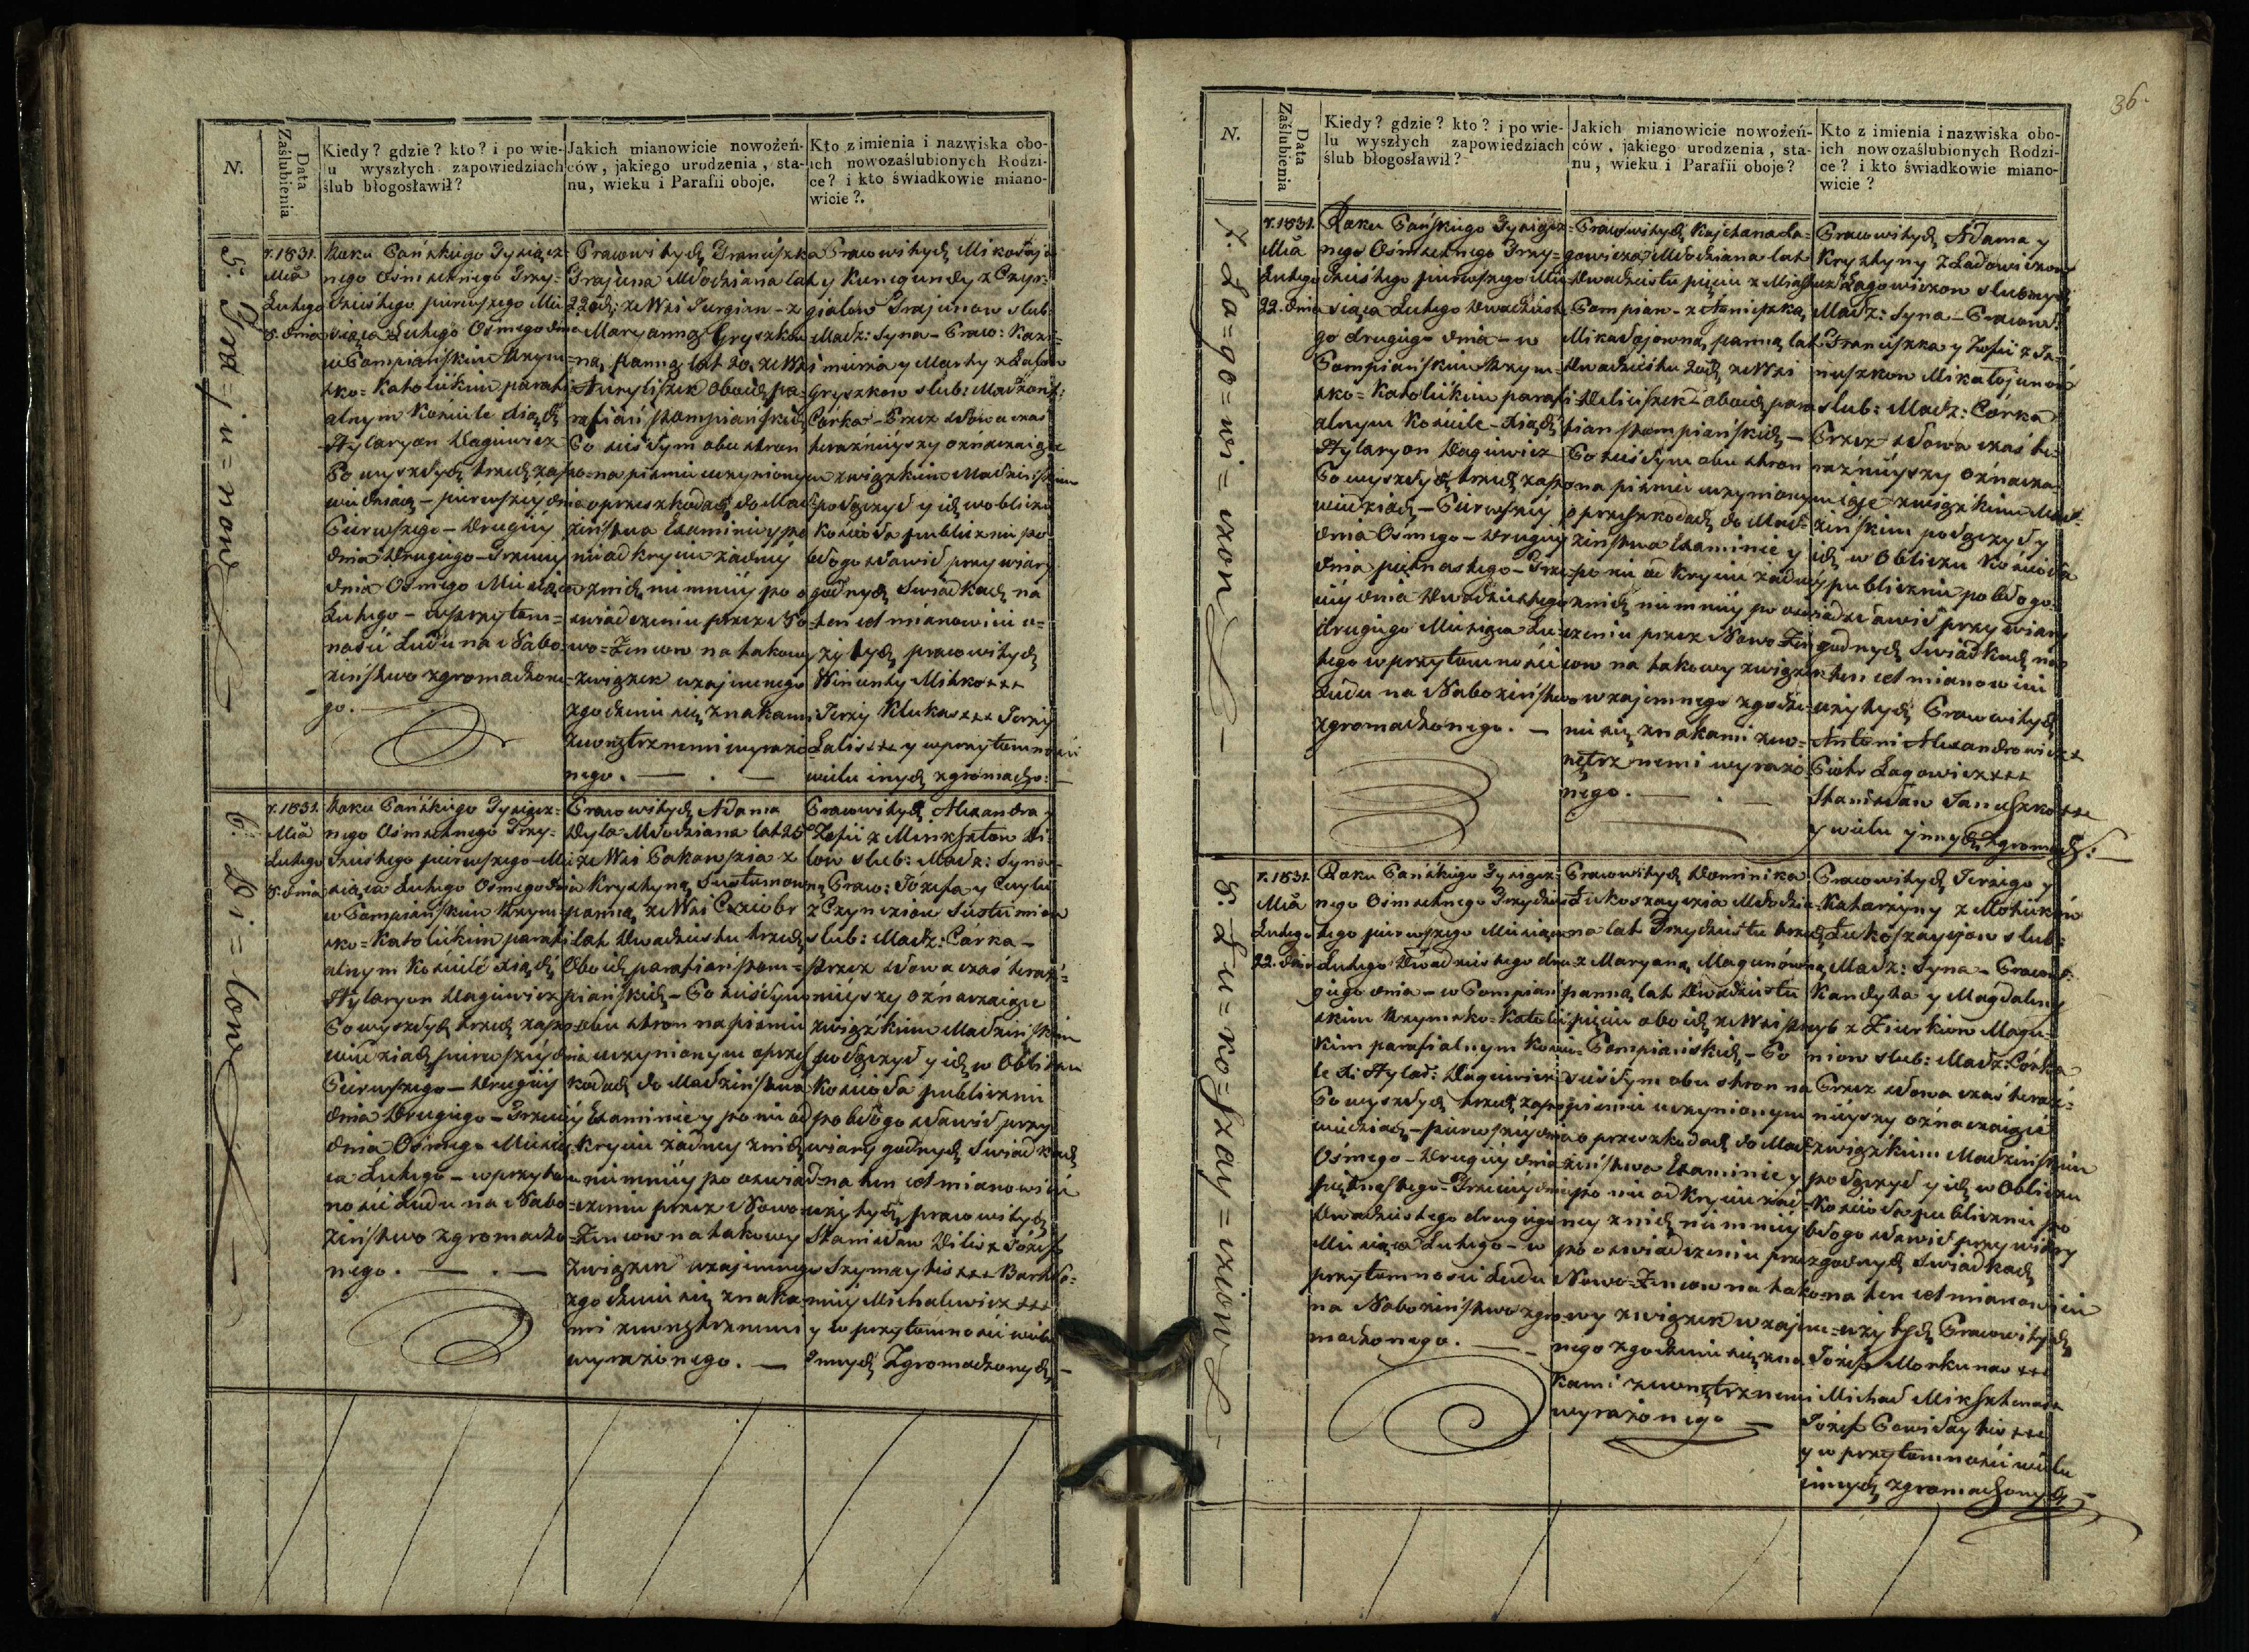 N.
Data Zaślubienia
Kiedy? gdzie? kto? i po wie-
lu wyszłych zapowiedziach
ślub błogosławił?
Jakich mianowicie nowożeń-
ców, jakiego urodzenia, sta-
nu, wieku i Parafii oboje.
Kto z imienia i nazwiska obo-
ich nowozaślubionych Rodzi-
ce? i kto świadkowie miano-
wicie?.
5.
r. 1831.
Mca
Lutego
8. dnia
Roku Pańskiego Tysiącz-
nego Ośmsetnego Trzy-
dziestego pierwszego Mie-
siąca Lutego Osmego dnia
w Pompiańskim Rzym-
sko=Katolickim parafi-
alnym Kościele Xiądz
Hylaryon
Po wyszłych trzech zapo-
wiedziach – pierwszey dnia
Pierwszego – Drugiey
dnia Drugiego – Trzeciey
dnia Osmego Miesiąca
Lutego – w przytom=
ności Ludu na Nabo-
żeństwo zgromadzone-
go.
Pracowitych Franciszka
Grajuna Młodziana lat
22 ze Wsi z
Maryanną Gryszkow-
ną, panną lat 20. ze Wsi
obojch pa-
rafian Pompiańskich
Po ścisłym obu stron
na piśmie uczynionym
o przeszkodach do Mał-
żeństwa Examinie y po
nieodkryciu żadney
z nich niemniey po o-
świadczeniu przez No-
wo=Żencow na takowy
związek wzajemnego
zgodzenia się znakami
zewnętrznemi wyrażo-
nego.
Pracowitych Mikołaja
y Kunegundy z
Grajunow slub:
Małż: Syna – Praco: Kazi-
mierza y Marty z
Gryszkow slub: Małżonk:
Córka – Przez słowa czas
teraźnieyszy oznaczaiące
związkiem Małżeńskim
połączył y ich w obliczu
Kościoła publicznie po
błogosławił przy wiary
godnych Swiadkach na
ten cel mianowicie u-
żytych pracowitych
Wincenty Mitko +++
Jerzy Klukas +++ Jerzy
+++ y w przytomności
wielu inych zgromadzo:
6.
r. 1831.
Mca
Lutego
8. dnia
Roku Pańskiego Tysiącz-
nego Ośmsetnego Trzy-
dziestego pierwszego Mie-
siąca Lutego Osmego dnia
w Pompiańskim Rzym-
sko=Katolickim parafi-
alnym Kościele Xiądz
Hylaryon
Po wyszłych trzech zapo-
wiedziach pierwszey dnia
Pierwszego – Drugiey
dnia Drugiego – Trzeciey
dnia Osmego Miesią-
ca Lutego – w przytom-
ności Ludu na Nabo-
żeństwo zgromadzo-
nego.
Pracowitych Adama
Młodziana lat 25
ze Wsi z
Krystyną
panną, ze Wsi
lat Dwadziestu trzech
Obojch parafian Pom=
piańskich – Po ścisłym
obu stron na piśmie
uczynionym o przesz-
kodach do Małżeństwa
Examinie y po nieod-
kryciu żadney z nich
niemniey po oswiad-
czeniu przez Nowo-
Żencow na takowy
związek wzajemnego
zgodzenia się znaka-
mi zewnętrznemi
wyrażonego. –
Pracowitych Alexandra y
Zofii z
slub: Małż: Syna –
Praco: Józefa y
z
slub: Małż: Córka –
Przez słowa czas teraź-
nieyszy oznaczaiące
związkiem Małżeńskim
połączył y ich w Obliczu
Kościoła publicznie
pobłogosławił przy
wiary godnych Swiadkach
na ten cel mianowicie
użytych pracowitych
Stanisław Józef
Szymaytis +++
Michalewicz +++
y w przytomności wielu
Innych Zgromadzonych –
36.
N.
Data Zaślubienia
Kiedy? gdzie? kto? i po wie-
lu wyszłych zapowiedziach
ślub błogosławił?
Jakich mianowicie nowożeń-
ców, jakiego urodzenia, sta-
nu, wieku i Parafii oboje?
Kto z imienia i nazwiska obo-
ich nowozaślubionych Rodzi-
ce? i kto świadkowie miano-
wicie?
7. Ła=go=wi=czow
r. 1831.
Mca
Lutego
22. dnia
Roku Pańskiego Tysiącz-
nego Ośmsetnego Trzy-
dziestego pierwszego Mie-
siąca Lutego Dwadziest-
go drugiego dnia – w
Pompiańskim Rzym-
sko=Katolickim parafi-
alnym Kościele – Xiądz
Hylaryon
Po wyszłych trzech zapo-
wiedziach – Pierwszey
dnia Osmego – Drugiey
dnia piętnastego – Trze-
ciey dnia Dwadziestego
drugiego Miesiąca Lu-
tego w przytomności
Ludu na Nabożeństwo
zgromadzonego. –
Pracowitych Kajetana Ła-
gowicza Młodziana lat
Dwadziestu pięciu z Miasta
Pompian – z Agnieszką
Mikałajowną, panną lat
Dwadziestu ze Wsi
obojch para-
fian Pompiańskich –
Po ścisłym obu stron
na piśmie uczynionym
o przeszkodach do Mał-
żeństwa Examinie y
po nieodkryciu żadney
z nich niemniey po oswiad-
czeniu przez Nowo Żen-
cow na takowy związek
wzajemnego zgodze-
nia się znakami zew-
nętrznemi wyrażo-
nego.
Pracowitych Adama y
Krystyny z
Łagowiczow slubnych
Małż: Syna – Pracowit:
Franciszka y Zofii z Ja-
nuszkow Mikałojunow
slub: Małż: Córka
Przez słowa czas te-
raźnieyszy oznacza-
iące związkiem Mał-
żeńskim połączył y
ich w Obliczu Kościoła
publicznie pobłogo-
sławił przy wiary
godnych Swiadkach na
ten cel mianowicie
użytych Pracowitych
Antoni Alexandrowicz ++
Piotr Łagowicz +++
Stanisław Januszko +++
y wielu ynnych zgromadz:
8. Łu=ko=szay=cziow
r. 1831.
Mca
Lutego
22. dnia
Roku Pańskiego Tysiącz-
nego Ośmsetnego Trzydzies-
tego pierwszego Miesiąca
Lutego Dwadziestego dru-
giego dnia – w Pompiań-
skim Rzymsko=Katolic-
kim parafialnym Koscie-
le Xi Hylar:
Po wyszłych trzech zapo-
wiedziach – pierwszey dnia
Osmego – Drugiey dnia
piętnastego – Trzeciey dnia
Dwadziestego drugiego
Miesiąca Lutego – w
przytomności Ludu
na Nabożeństwo zgro-
madzonego.
Pracowitych Dominika
Łukoszayczia Młodzia-
na lat Trzydziestu trzech
z Maryaną Magunówną
panną, lat Dwadziestu
pięciu obojch ze Wsi
Pompiańskich. – Po
ścisłym obu stron na
piśmie uczynionym
o przeszkodach do Mał-
żeństwa Examinie y
po nieodkryciu żad-
ney z nich niemniey
po oswiadczeniu przez
Nowo=Żencow na tako-
wy związek wzajem-
nego zgodzenia się zna-
kami zewnętrznemi
wyrażonego –
Pracowitych Jerzego y
Katarzyny z
Łukoszayciow slub:
Małż: Syna – Pracowit:
Kandyta y Magdaleny
z Magu-
niow slub: Małż: Córka
Przez słowa czas teraź-
nieyszy oznaczaiące
związkiem Małżeńskim
połączył y ich w Obliczu
Kościoła publicznie po
błogosławił przy wiary
godnych Swiadkach
na ten cel mianowicie
użytych Pracowitych
Józef Morkunas +++
Michał
Józef +++
y w przytomności wielu
innych zgromadzonych –